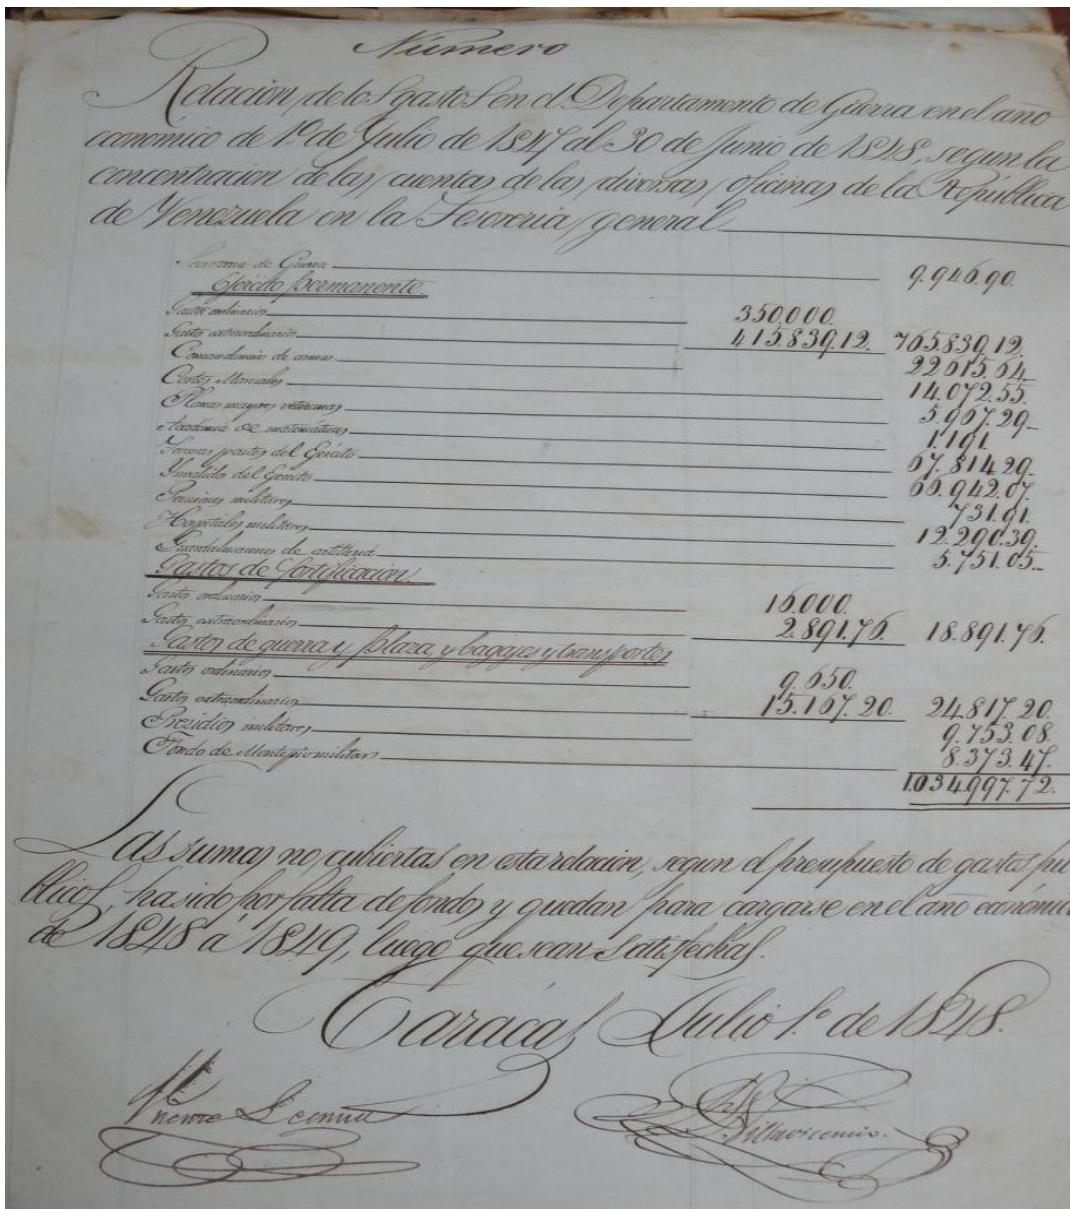 Número
Relacion de los gastos en el Departamento de Guerra en el año
económico de 1º de Julio de 1847 al 30 de Junio de 1848, segun la
concentracion de las cuentas de las diversas oficinas de la República
de Venezuela en la Tesoreria general
Secretaria de Guerra 9.946.90.
Ejército permanente.
Gastos ordinarios 350.000.
Gastos extraordinarios 415.839.12. 765.839.12.
Comandancias de armas 22615.64
Cortes Marciales 14.072.55.
Planas mayores veteranas 5.967.29
Academia de matematicas 1.191
Terceras partes del Ejército 67.814.29.
Invalidos del Ejército 66.942.07.
Pensiones militares 731.91.
Hospitales militares 12.290.39.
Guardalmacenes de artilleria 5.751.05.
Gastos de fortificacion.
Gastos ordinarios 16.000.
Gastos extraordinarios 2.891.76. 18.891.76.
Gastos de guerra y plaza y bagajes y transportes
Gastos ordinarios 9.650.
Gastos extraordinarios 15.167.20. 24.817.20.
Presidios militares 9.753.08.
Fondo de Montepio militar 8.373.47.
1.034.997.72.
Las sumas no cubiertas en esta relacion, segun el presupuesto de gastos pú
blicos, ha sido por falta de fondos y quedan para cargarse en el año económico
de 1848 á 1849, luego que sean satisfechas.
Carácas Julio 1.º de 1848.
Vicente Lecuna
Villavicencio.